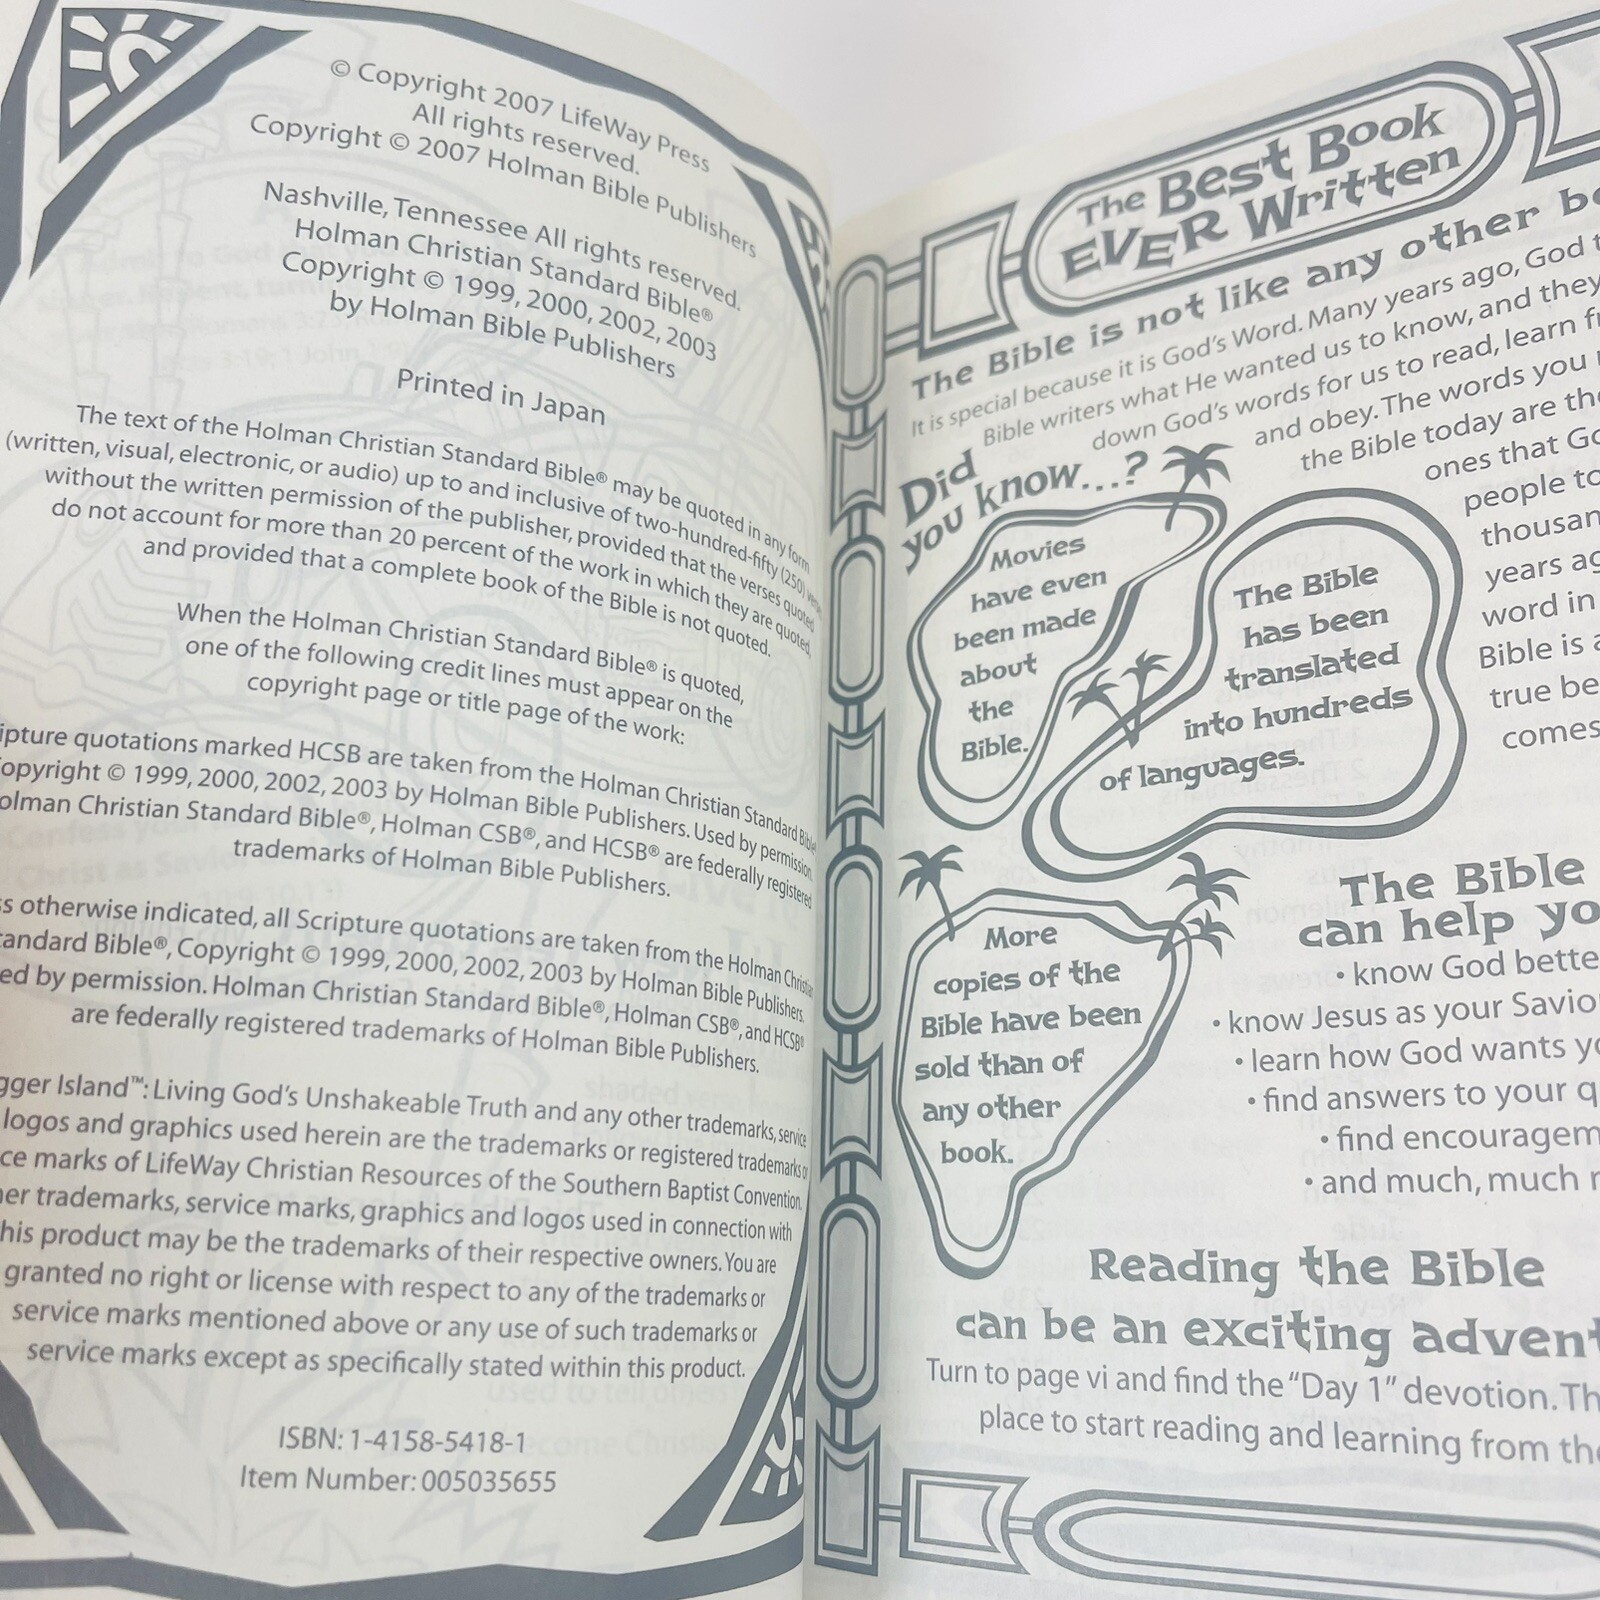 © Copyright 2007 LifeWay Press
All rights reserved.
Copyright © 2007 Holman Bible Publishers
Nashville, Tennessee All rights reserved.
Holman Christian Standard Bible®
Copyright © 1999, 2000, 2002, 2003
by Holman Bible Publishers
Printed in Japan
The text of the Holman Christian Standard Bible® may be quoted in any form
(written, visual, electronic, or audio) up to and inclusive of two-hundred-fifty (250)
without the written permission of the publisher, provided that the verses quoted
do not account for more than 20 percent of the work in which they are quoted,
and provided that a complete book of the Bible is not quoted.
When the Holman Christian Standard Bible® is quoted,
one of the following credit lines must appear on the
copyright page or title page of the work:
quotations marked HCSB are taken from the Holman Christian Standard Bible
© 1999, 2000, 2002, 2003 by Holman Bible Publishers. Used by permission.
Christian Standard Bible®, Holman CSB®, and HCSB® are federally registered
trademarks of Holman Bible Publishers.
otherwise indicated, all Scripture quotations are taken from the Holman
Bible®, Copyright © 1999, 2000, 2002, 2003 by Holman Bible Publishers.
by permission. Holman Christian Standard Bible®, Holman CSB®, and HCSB®
are federally registered trademarks of Holman Bible Publishers.
Island™: Living God's Unshakeable Truth and any other trademarks, service
logos and graphics used herein are the trademarks or registered trademarks or
marks of LifeWay Christian Resources of the Southern Baptist Convention.
trademarks, service marks, graphics and logos used in connection with
this product may be the trademarks of their respective owners. You are
granted no right or license with respect to any of the trademarks or
service marks mentioned above or any use of such trademarks or
service marks except as specifically stated within this product.
ISBN: 1-4158-5418-1
Item Number: 005035655
The Best Book
EVER Written
The Bible is not like any other
It is special because it is God's Word. Many years ago, God
Bible writers what He wanted us to know, and they
down God's words for us to read, learn
and obey. The words you
the Bible today are
ones that
people to
years
word in
Bible is
true
comes
Did
you know...?
Movies
have even
been made
about
the
Bible.
The Bible
has been
translated
into hundreds
of languages.
More
copies of the
Bible have been
sold than of
any other
book.
The Bible
can help
• know God
• know Jesus as your
• learn how God wants
• find answers to your
• find
• and much, much
Reading the Bible
can be an exciting
Turn to page vi and find the "Day 1" devotion.
place to start reading and learning from